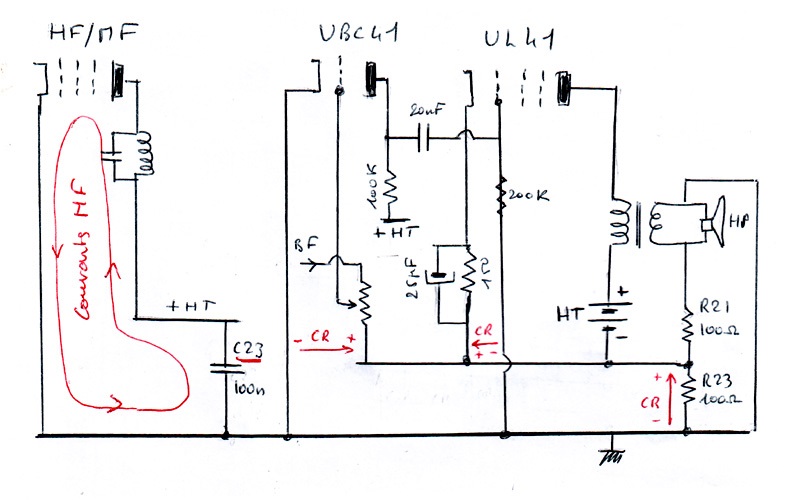 HF/MF
UBC41
UL41
20nF
100K
+HT
200K
HP
Courants HF
BF
25µF
+HT
HT
+
-
R21
100Ω
C23
100n
- CR +
CR
+ -
+
CR
-
R23
100Ω